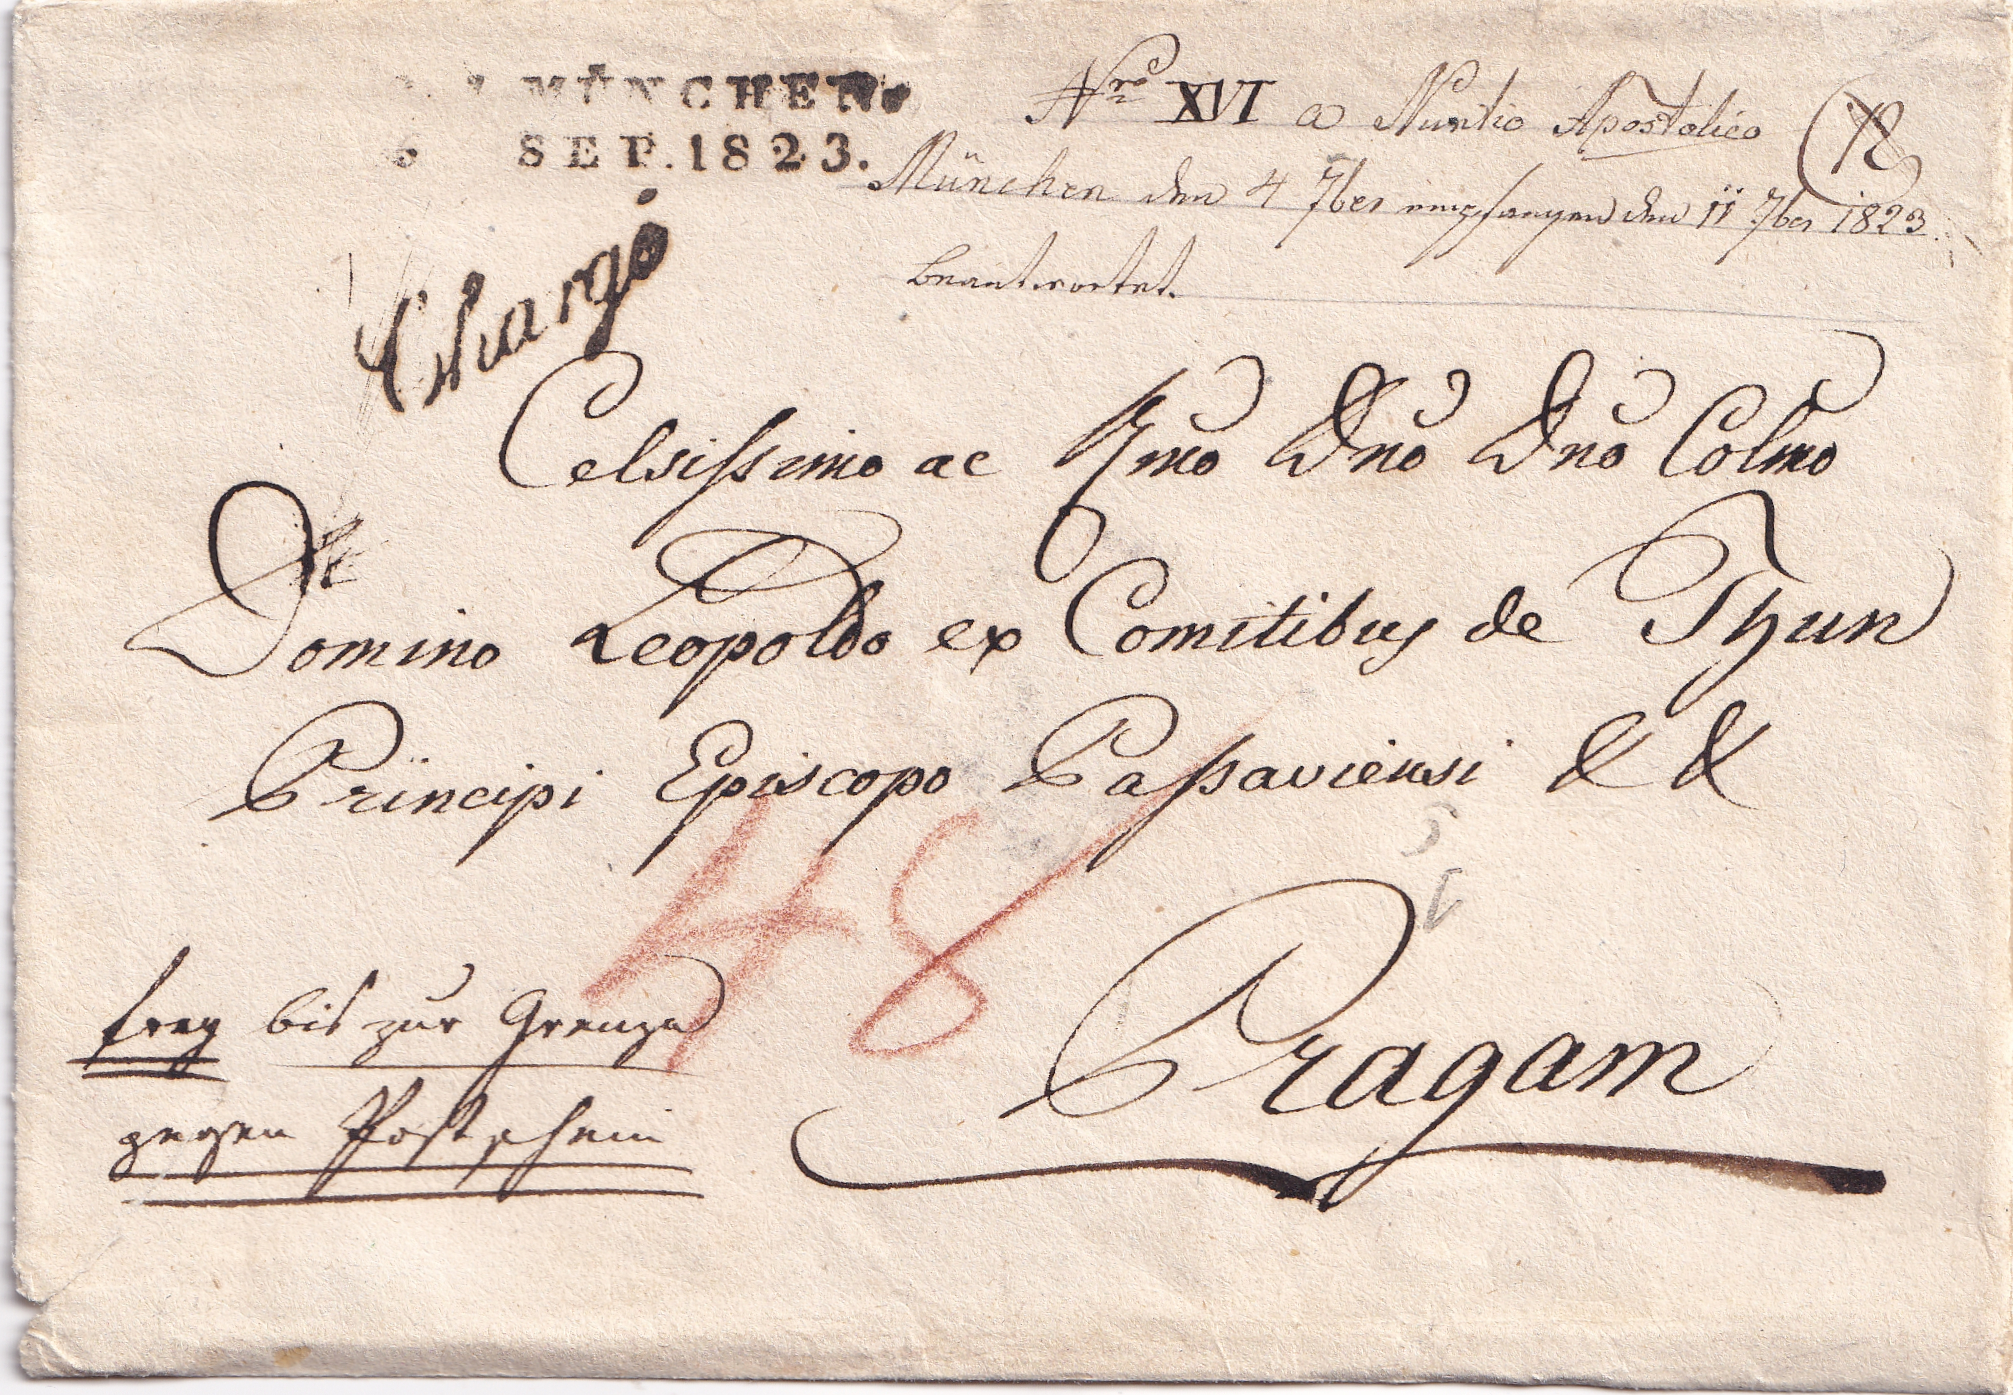 MÜNCHEN
6 SEP. 1823.
Nro XVI a Nuntio Apostolico
München den 4 7ber empfangen den 11 7ber 1823.
beantwortet.
Chargé
Celsissimo ac Rmo Dno Dno Colmo
Domino Leopoldo ex Comitibus de Thun
Principi Episcopo Passaviensi & &
48
Pragam
frey bis zur Grenze
gegen Postschein